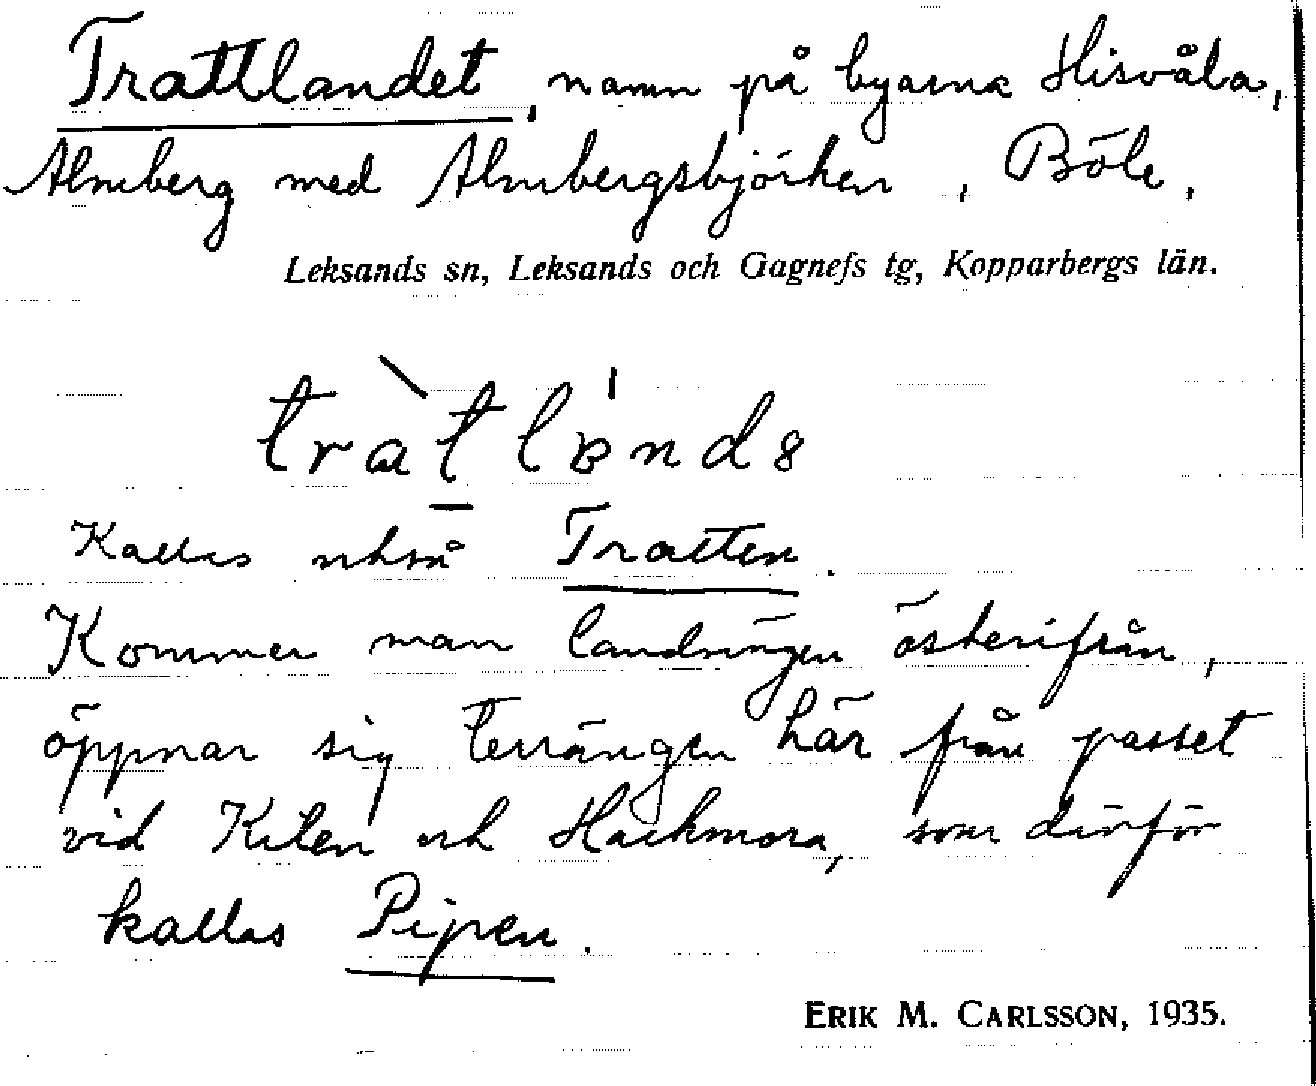 Trattlandet, namn på byarna Hisvåla,
Almberg med Almbergsbjörken, Böle,
Leksands sn, Leksands och Gagnefs tg, Kopparbergs län.
Kallas också Tratten.
Kommer man landsvägen österifrån,
öppnar sig terrängen här från passet
vid Kilen och Hackmora, som därför
kallas Pipen.
ERIK M. CARLSSON, 1935.